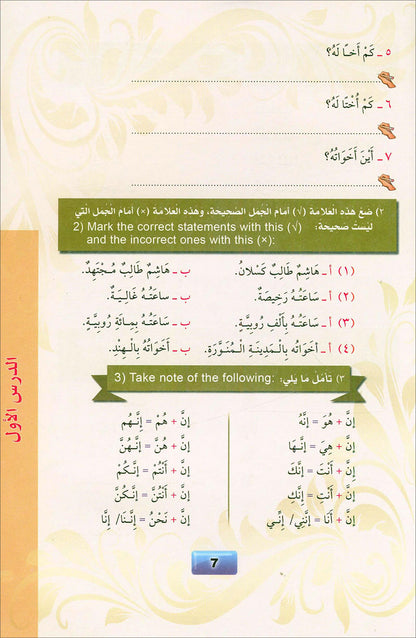 ٥ ـ كَمْ أَخـًا لَهُ؟
........................................................................
٦ ـ كَمْ أُخْتـًا لَهُ؟
........................................................................
٧ ـ أَيْنَ أَخَوَاتُهُ؟
........................................................................
٢) ضَعْ هَذِهِ العَلامَةَ (√) أَمَامَ الْجُمَلِ الصَّحِيحَةِ، وهَذِهِ العَلامَةَ (×) أَمَامَ الْجُمَلِ الَّتِي
لَيْسَت صَحِيحَةً:
2) Mark the correct statements with this (√)
and the incorrect ones with this (×):
(١) أ ـ هَاشِمٌ طَالِبٌ كَسْلَانُ. ب ـ هَاشِمٌ طَالِبٌ مُجْتَهِدٌ.
(٢) أ ـ سَاعَتُهُ رَخِيصَةٌ. ب ـ ساعَتُهُ غَالِيَةٌ.
(٣) أ ـ سَاعَتُهُ بِأَلْفِ رُوبِيَّةٍ. ب ـ سَاعَتُهُ بِمِائَةِ رُوبِيَّةٍ.
(٤) أ ـ أَخَوَاتُهُ بِالْمَدِينَةِ الْمُنَوَّرَةِ. ب ـ أَخَوَاتُهُ بِالْهِنْدِ.
٣) تَأَمَّلْ مَا يَلِي: 3) Take note of the following:
إِنَّ + هُوَ = إِنَّهُ إِنَّ + هُمْ = إِنَّهُم
إِنَّ + هِيَ = إِنَّهَا إِنَّ + هُنَّ = إِنَّهُنَّ
إِنَّ + أَنْتَ = إِنَّكَ إِنَّ + أَنْتُمْ = إِنَّكُمْ
إِنَّ + أَنْتِ = إِنَّكِ إِنَّ + أَنْتُنَّ = إِنَّكُنَّ
إِنَّ + أَنَا = إِنَّنِي/ إِنِّي إِنَّ + نَحْنُ = إِنَّنَا/ إِنَّا
7
الدرس الأول